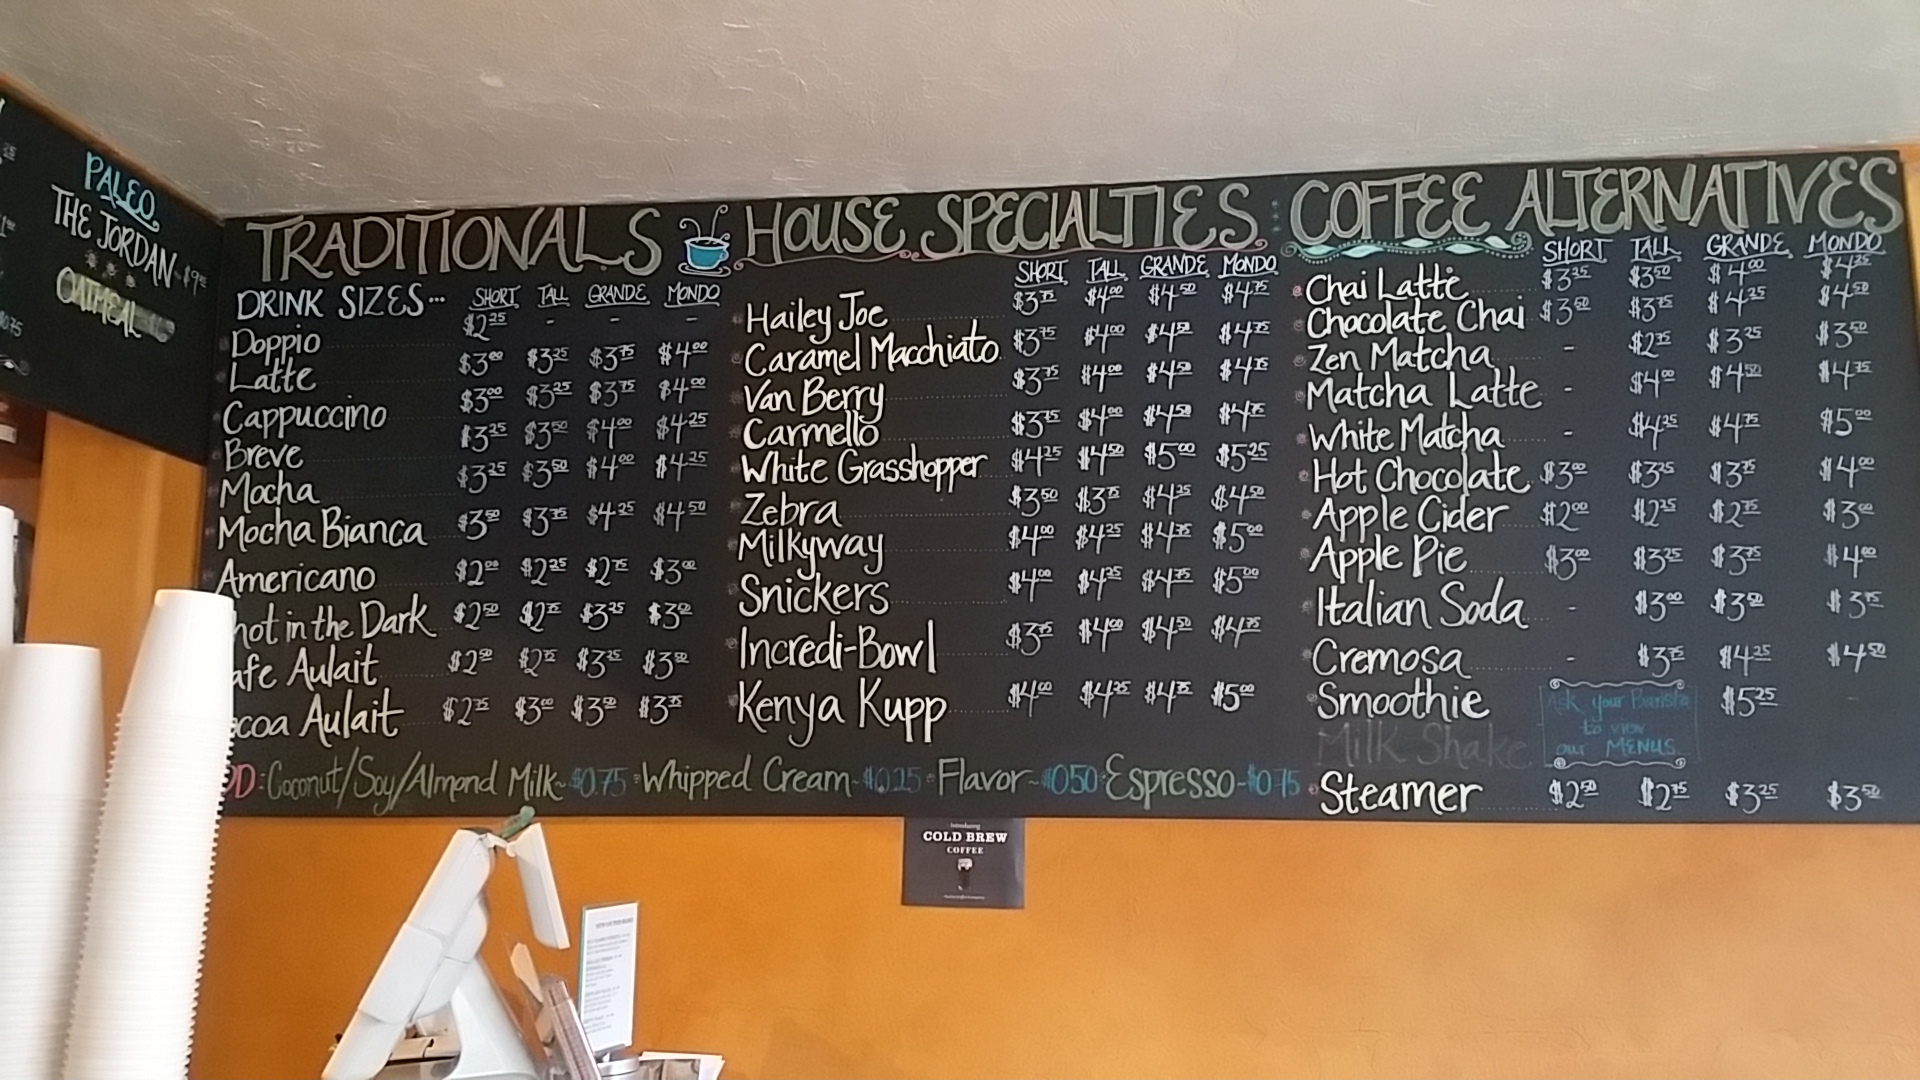 PALEO
THE JORDAN $9
OATMEAL
TRADITIONALS
DRINK SIZES... SHORT TALL GRANDE MONDO
Doppio $2.25 - - -
Latte $3.00 $3.25 $3.75 $4.00
Cappuccino $3.00 $3.25 $3.75 $4.00
Breve $3.25 $3.50 $4.00 $4.25
Mocha $3.25 $3.50 $4.00 $4.25
Mocha Bianca $3.50 $3.75 $4.25 $4.50
Americano $2.00 $2.25 $2.75 $3.00
hot in the Dark $2.50 $2.75 $3.25 $3.50
afe Aulait $2.50 $2.75 $3.25 $3.50
coa Aulait $2.75 $3.00 $3.50 $3.75
HOUSE SPECIALTIES
SHORT TALL GRANDE MONDO
Hailey Joe $3.75 $4.00 $4.50 $4.75
Caramel Macchiato $3.75 $4.00 $4.50 $4.75
Van Berry $3.75 $4.00 $4.50 $4.75
Carmello $3.75 $4.00 $4.50 $4.75
White Grasshopper $4.25 $4.50 $5.00 $5.25
Zebra $3.50 $3.75 $4.25 $4.50
Milkyway $4.00 $4.25 $4.75 $5.00
Snickers $4.00 $4.25 $4.75 $5.00
Incredi-Bowl $3.75 $4.00 $4.50 $4.75
Kenya Kupp $4.00 $4.25 $4.75 $5.00
COFFEE ALTERNATIVES
SHORT TALL GRANDE MONDO
Chai Latte $3.25 $3.50 $4.00 $4.25
Chocolate Chai $3.50 $3.75 $4.25 $4.50
Zen Matcha - $2.75 $3.25 $3.50
Matcha Latte - $4.00 $4.50 $4.75
White Matcha - $4.25 $4.75 $5.00
Hot Chocolate $3.00 $3.25 $3.75 $4.00
Apple Cider $2.00 $2.25 $2.75 $3.00
Apple Pie $3.00 $3.25 $3.75 $4.00
Italian Soda - $3.00 $3.50 $3.75
Cremosa - $3.75 $4.25 $4.50
Smoothie $5.25 -
Milk Shake
Ask your Barista
to view
our MENUS
Steamer $2.50 $2.75 $3.25 $3.50
D: Coconut/Soy/Almond Milk~$0.75 Whipped Cream~$0.25 Flavor~$0.50 Espresso~$0.75
Introducing
COLD BREW
COFFEE